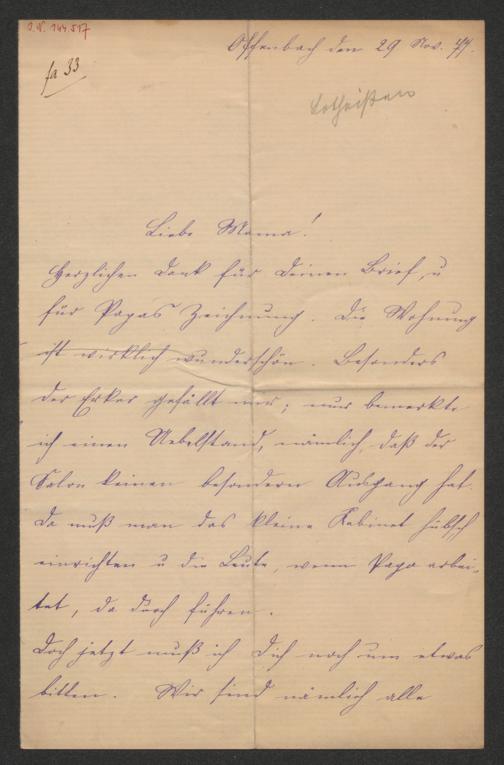 I.N. 144.517
fa 33
Offenbach den 29 Nov. 77.
Lotheißen
Liebe Mama!
Herzlichen Dank für Deinen Brief, u
für Papas Zeichnung. Die Wohnung
ist wirklich wunderschön. Besonders
der Erker gefällt mir; nur bemerkte
ich einen Uebelstand, nämlich, daß der
Salon keinen besondern Ausgang hat.
Da muß man das kleine Kabinet hübsch
einrichten u die Leute, wenn Papa arbei-
tet, da durch führen.
Doch jetzt muß ich Dich noch um etwas
bitten. Wir sind nämlich alle